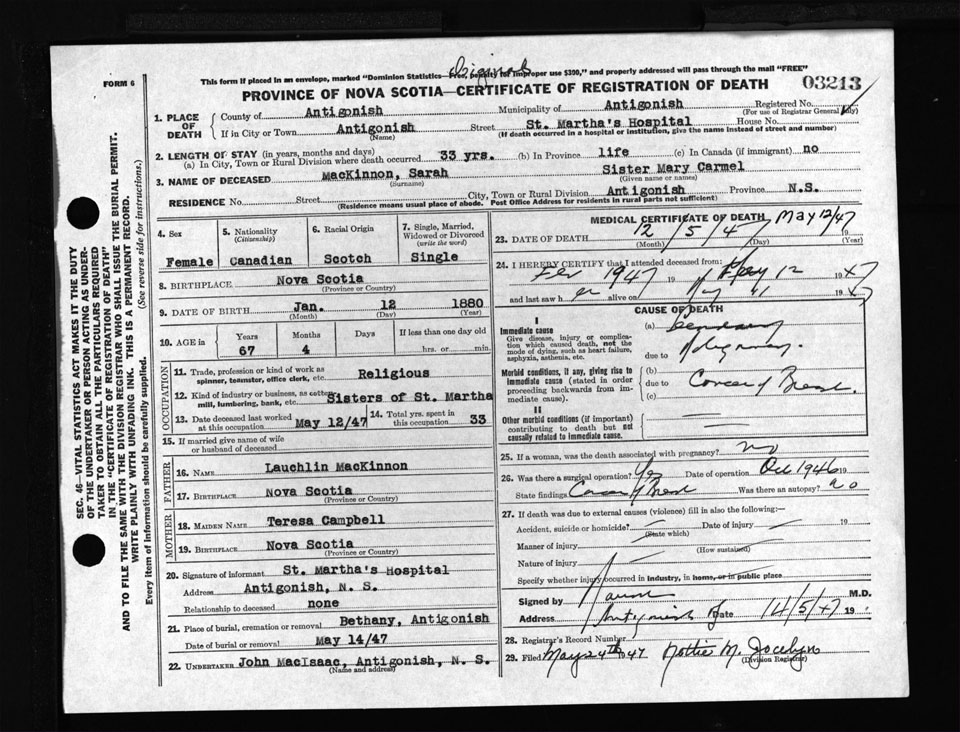 Original
FORM 6
This form if placed in an envelope, marked "Dominion Statistics—Free, penalty for improper use $300," and properly addressed will pass through the mail "FREE"
PROVINCE OF NOVA SCOTIA—CERTIFICATE OF REGISTRATION OF DEATH
03213
1. PLACE OF DEATH
County of Antigonish Municipality of Antigonish Registered No.
(For use of Registrar General only)
If in City or Town Antigonish Street St. Martha's Hospital House No.
(Name) (If death occurred in a hospital or institution, give the name instead of street and number)
2. LENGTH OF STAY (in years, months and days)
(a) In City, Town or Rural Division where death occurred 33 yrs. (b) In Province life (c) In Canada (if immigrant) no
3. NAME OF DECEASED MacKinnon, Sarah Sister Mary Carmel
(Surname) (Given name or names)
RESIDENCE No. Street City, Town or Rural Division Antigonish Province N.S.
(Residence means usual place of abode. Post Office Address for residents in rural parts not sufficient)
4. Sex
Female
5. Nationality
(Citizenship)
Canadian
6. Racial Origin
Scotch
7. Single, Married, Widowed or Divorced
(write the word)
Single
8. BIRTHPLACE Nova Scotia
(Province or Country)
9. DATE OF BIRTH Jan. 12 1880
(Month) (Day) (Year)
10. AGE in Years Months Days If less than one day old
67 4 hrs. or min.
OCCUPATION
11. Trade, profession or kind of work as spinner, teamster, office clerk, etc. Religious
12. Kind of industry or business, as cotton mill, lumbering, bank, etc. Sisters of St. Martha
13. Date deceased last worked at this occupation May 12/47
14. Total yrs. spent in this occupation 33
15. If married give name of wife or husband of deceased
FATHER
16. NAME Lauchlin MacKinnon
17. BIRTHPLACE Nova Scotia
(Province or Country)
MOTHER
18. MAIDEN NAME Teresa Campbell
19. BIRTHPLACE Nova Scotia
(Province or Country)
20. Signature of informant St. Martha's Hospital
Address Antigonish, N. S.
Relationship to deceased none
21. Place of burial, cremation or removal Bethany, Antigonish
Date of burial or removal May 14/47
22. UNDERTAKER John MacIsaac, Antigonish, N. S.
(Name and address)
MEDICAL CERTIFICATE OF DEATH May 12/47
23. DATE OF DEATH 12/5/47
(Month) (Day) (Year)
24. I HEREBY CERTIFY that I attended deceased from:
Fev 1947 19 May 12 1947
and last saw her alive on May 11 1947
CAUSE OF DEATH
I
Immediate cause
Give disease, injury or complication which caused death, not the mode of dying, such as heart failure, asphyxia, asthenia, etc.
(a)
due to
Morbid conditions, if any, giving rise to immediate cause (stated in order proceeding backwards from immediate cause).
(b)
due to Cancer of Breast
(c)
II
Other morbid conditions (if important) contributing to death but not causally related to immediate cause.
25. If a woman, was the death associated with pregnancy? no
26. Was there a surgical operation? Yes Date of operation Oct 1946 19
State findings Cancer of Breast Was there an autopsy? no
27. If death was due to external causes (violence) fill in also the following:—
Accident, suicide or homicide? Date of injury 19
(State which)
Manner of injury
(How sustained)
Nature of injury
Specify whether injury occurred in industry, in home, or in public place
Signed by M.D.
Address Antigonish Date 14/5/47 19
28. Registrar's Record Number
29. Filed May 24th 1947 Dottie M. Jocelyn
(Division Registrar)
SEC. 46—VITAL STATISTICS ACT MAKES IT THE DUTY
OF THE UNDERTAKER OR PERSON ACTING AS UNDER-
TAKER TO OBTAIN ALL THE PARTICULARS REQUIRED
IN THE "CERTIFICATE OF REGISTRATION OF DEATH"
AND TO FILE THE SAME WITH THE DIVISION REGISTRAR WHO SHALL ISSUE THE BURIAL PERMIT.
WRITE PLAINLY WITH UNFADING INK. THIS IS A PERMANENT RECORD.
Every item of Information should be carefully supplied. (See reverse side for instructions.)